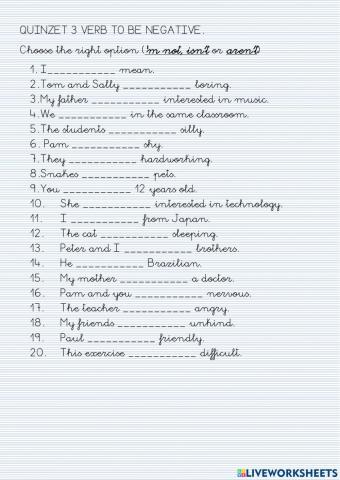 QUINZET 3 VERB TO BE NEGATIVE.
Choose the right option ('m not, isn't or aren't)
1. I___________ mean.
2.Tom and Sally ___________ boring.
3.My father ___________ interested in music.
4.We ___________ in the same classroom.
5.The students ___________ silly.
6. Pam ___________ shy.
7.They ___________ hardworking.
8.Snakes ___________ pets.
9.You ___________ 12 years old.
10. She ___________ interested in technology.
11. I ___________ from Japan.
12. The cat ___________ sleeping.
13. Peter and I ___________ brothers.
14. He ___________ Brazilian.
15. My mother ___________ a doctor.
16. Pam and you ___________ nervous.
17. The teacher ___________ angry.
18. My friends ___________ unkind.
19. Paul ___________ friendly.
20. This exercise ___________ difficult.
LIVEWORKSHEETS